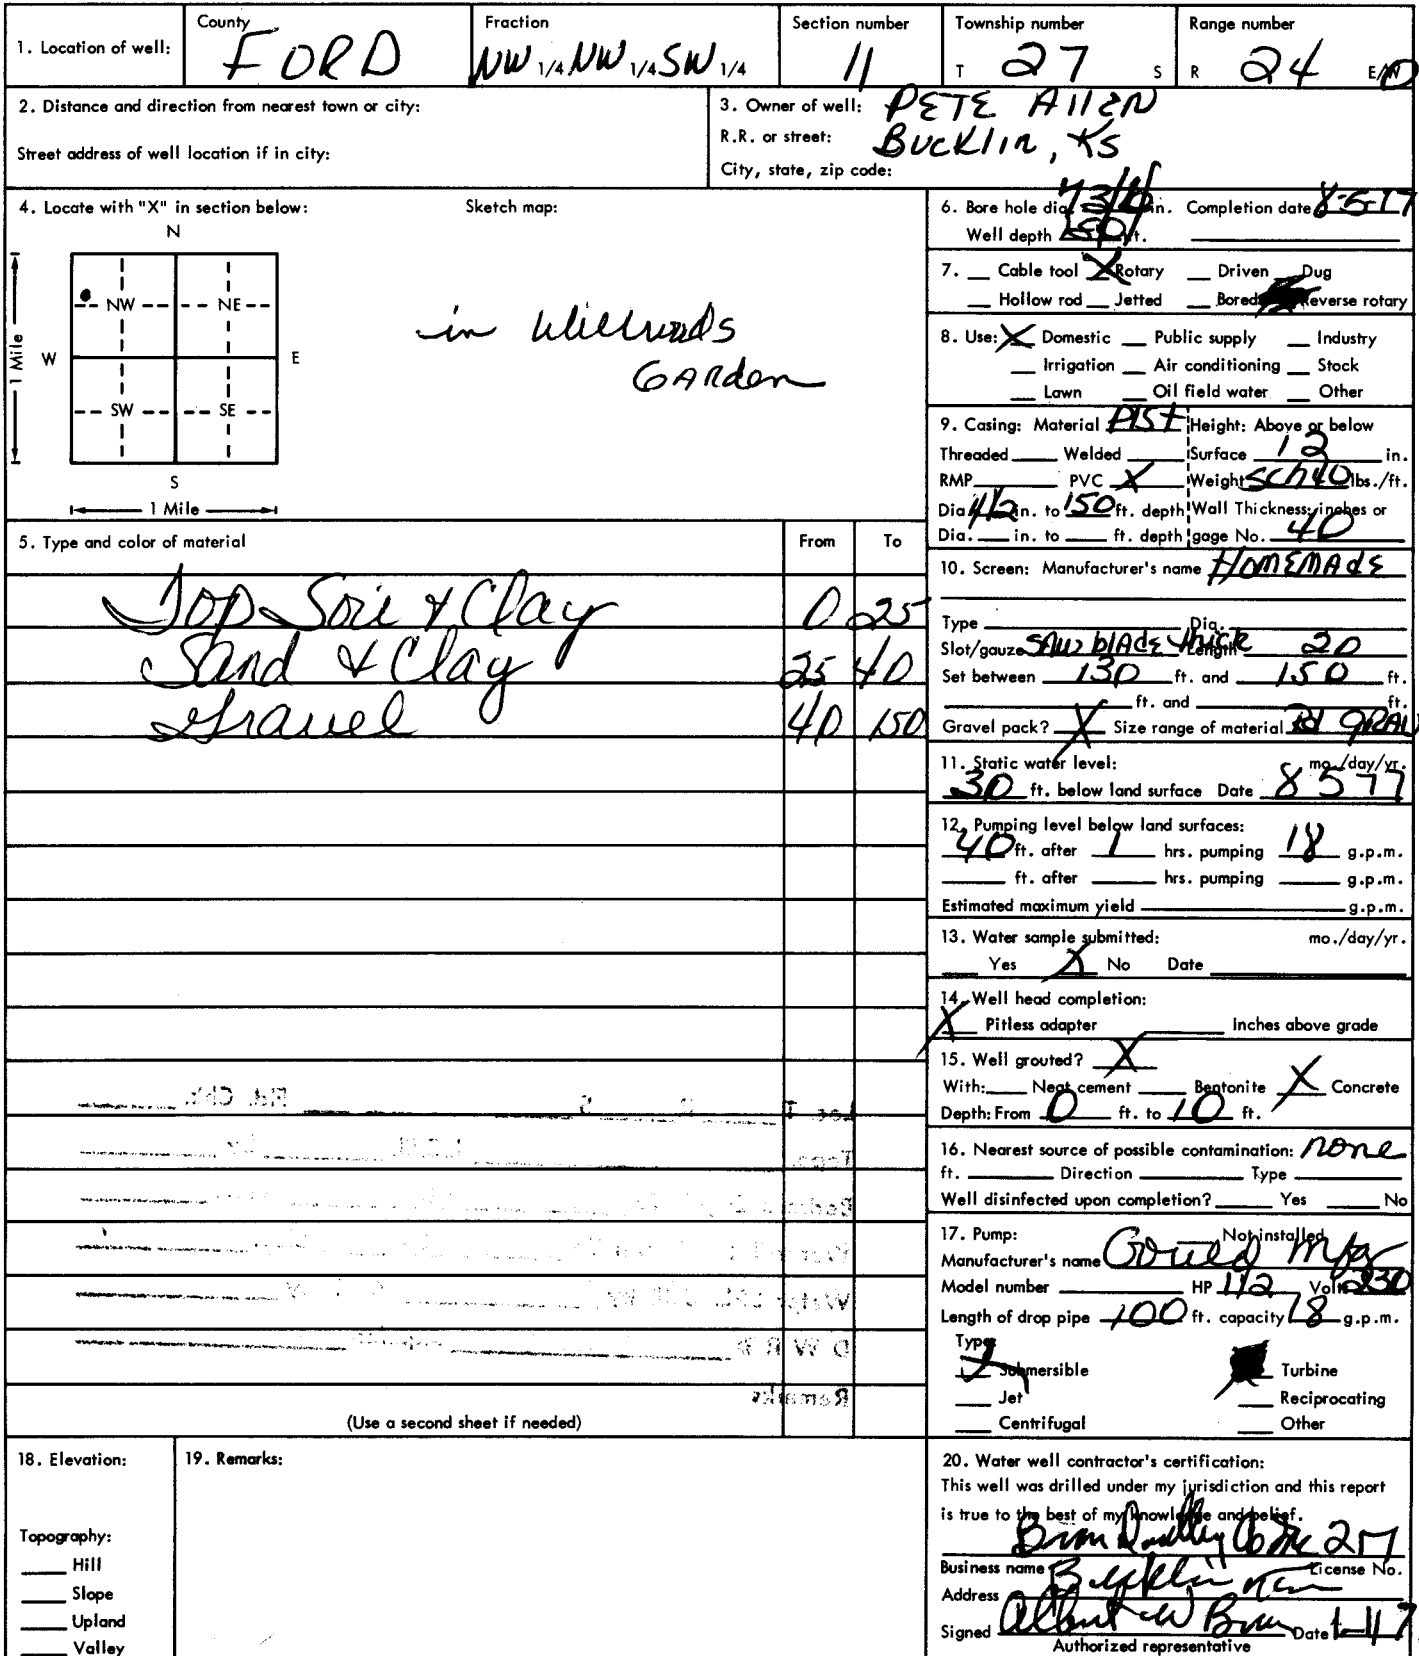 1. Location of well: County FORD Fraction NW 1/4 NW 1/4 SW 1/4 Section number 11 Township number T 27 S Range number R 24 E/W
2. Distance and direction from nearest town or city:
Street address of well location if in city:
3. Owner of well: PETE AllEN
R.R. or street: BUCKlIN, KS
City, state, zip code:
4. Locate with "X" in section below: Sketch map:
N
NW NE
W E
SW SE
S
1 Mile
1 Mile
in
GARden
6. Bore hole dia. in. Completion date 8-5-77
Well depth 150 ft.
7. Cable tool X Rotary Driven Dug
Hollow rod Jetted Bored Reverse rotary
8. Use: X Domestic Public supply Industry
Irrigation Air conditioning Stock
Lawn Oil field water Other
9. Casing: Material PlST Height: Above or below
Threaded Welded Surface 12 in.
RMP PVC X Weight Sch40 lbs./ft.
Dia 4 1/2 in. to 150 ft. depth Wall Thickness: inches or
Dia. in. to ft. depth gage No. 40
5. Type and color of material From To
Top Soil & Clay 0 25
Sand & Clay 25 40
Gravel 40 150
(Use a second sheet if needed)
10. Screen: Manufacturer's name HOMEMADE
Type Dia.
Slot/gauze SAW blAdE thick Length 20
Set between 130 ft. and 150 ft.
ft. and ft.
Gravel pack? X Size range of material Rd GRAV
11. Static water level: mo./day/yr.
30 ft. below land surface Date 8 5 77
12. Pumping level below land surfaces:
40 ft. after 1 hrs. pumping 18 g.p.m.
ft. after hrs. pumping g.p.m.
Estimated maximum yield g.p.m.
13. Water sample submitted: mo./day/yr.
Yes X No Date
14. Well head completion:
X Pitless adapter Inches above grade
15. Well grouted? X
With: Neat cement Bentonite X Concrete
Depth: From 0 ft. to 10 ft.
16. Nearest source of possible contamination: none
ft. Direction Type
Well disinfected upon completion? Yes No
17. Pump: Not installed
Manufacturer's name Gould Mfg
Model number HP 1 1/2 Volts 230
Length of drop pipe 100 ft. capacity 18 g.p.m.
Type:
Submersible Turbine
Jet Reciprocating
Centrifugal Other
18. Elevation:
Topography:
Hill
Slope
Upland
Valley
19. Remarks:
20. Water well contractor's certification:
This well was drilled under my jurisdiction and this report
is true to the best of my knowledge and belief.
Business name License No.
Address Bucklin
Signed Albert W Date
Authorized representative